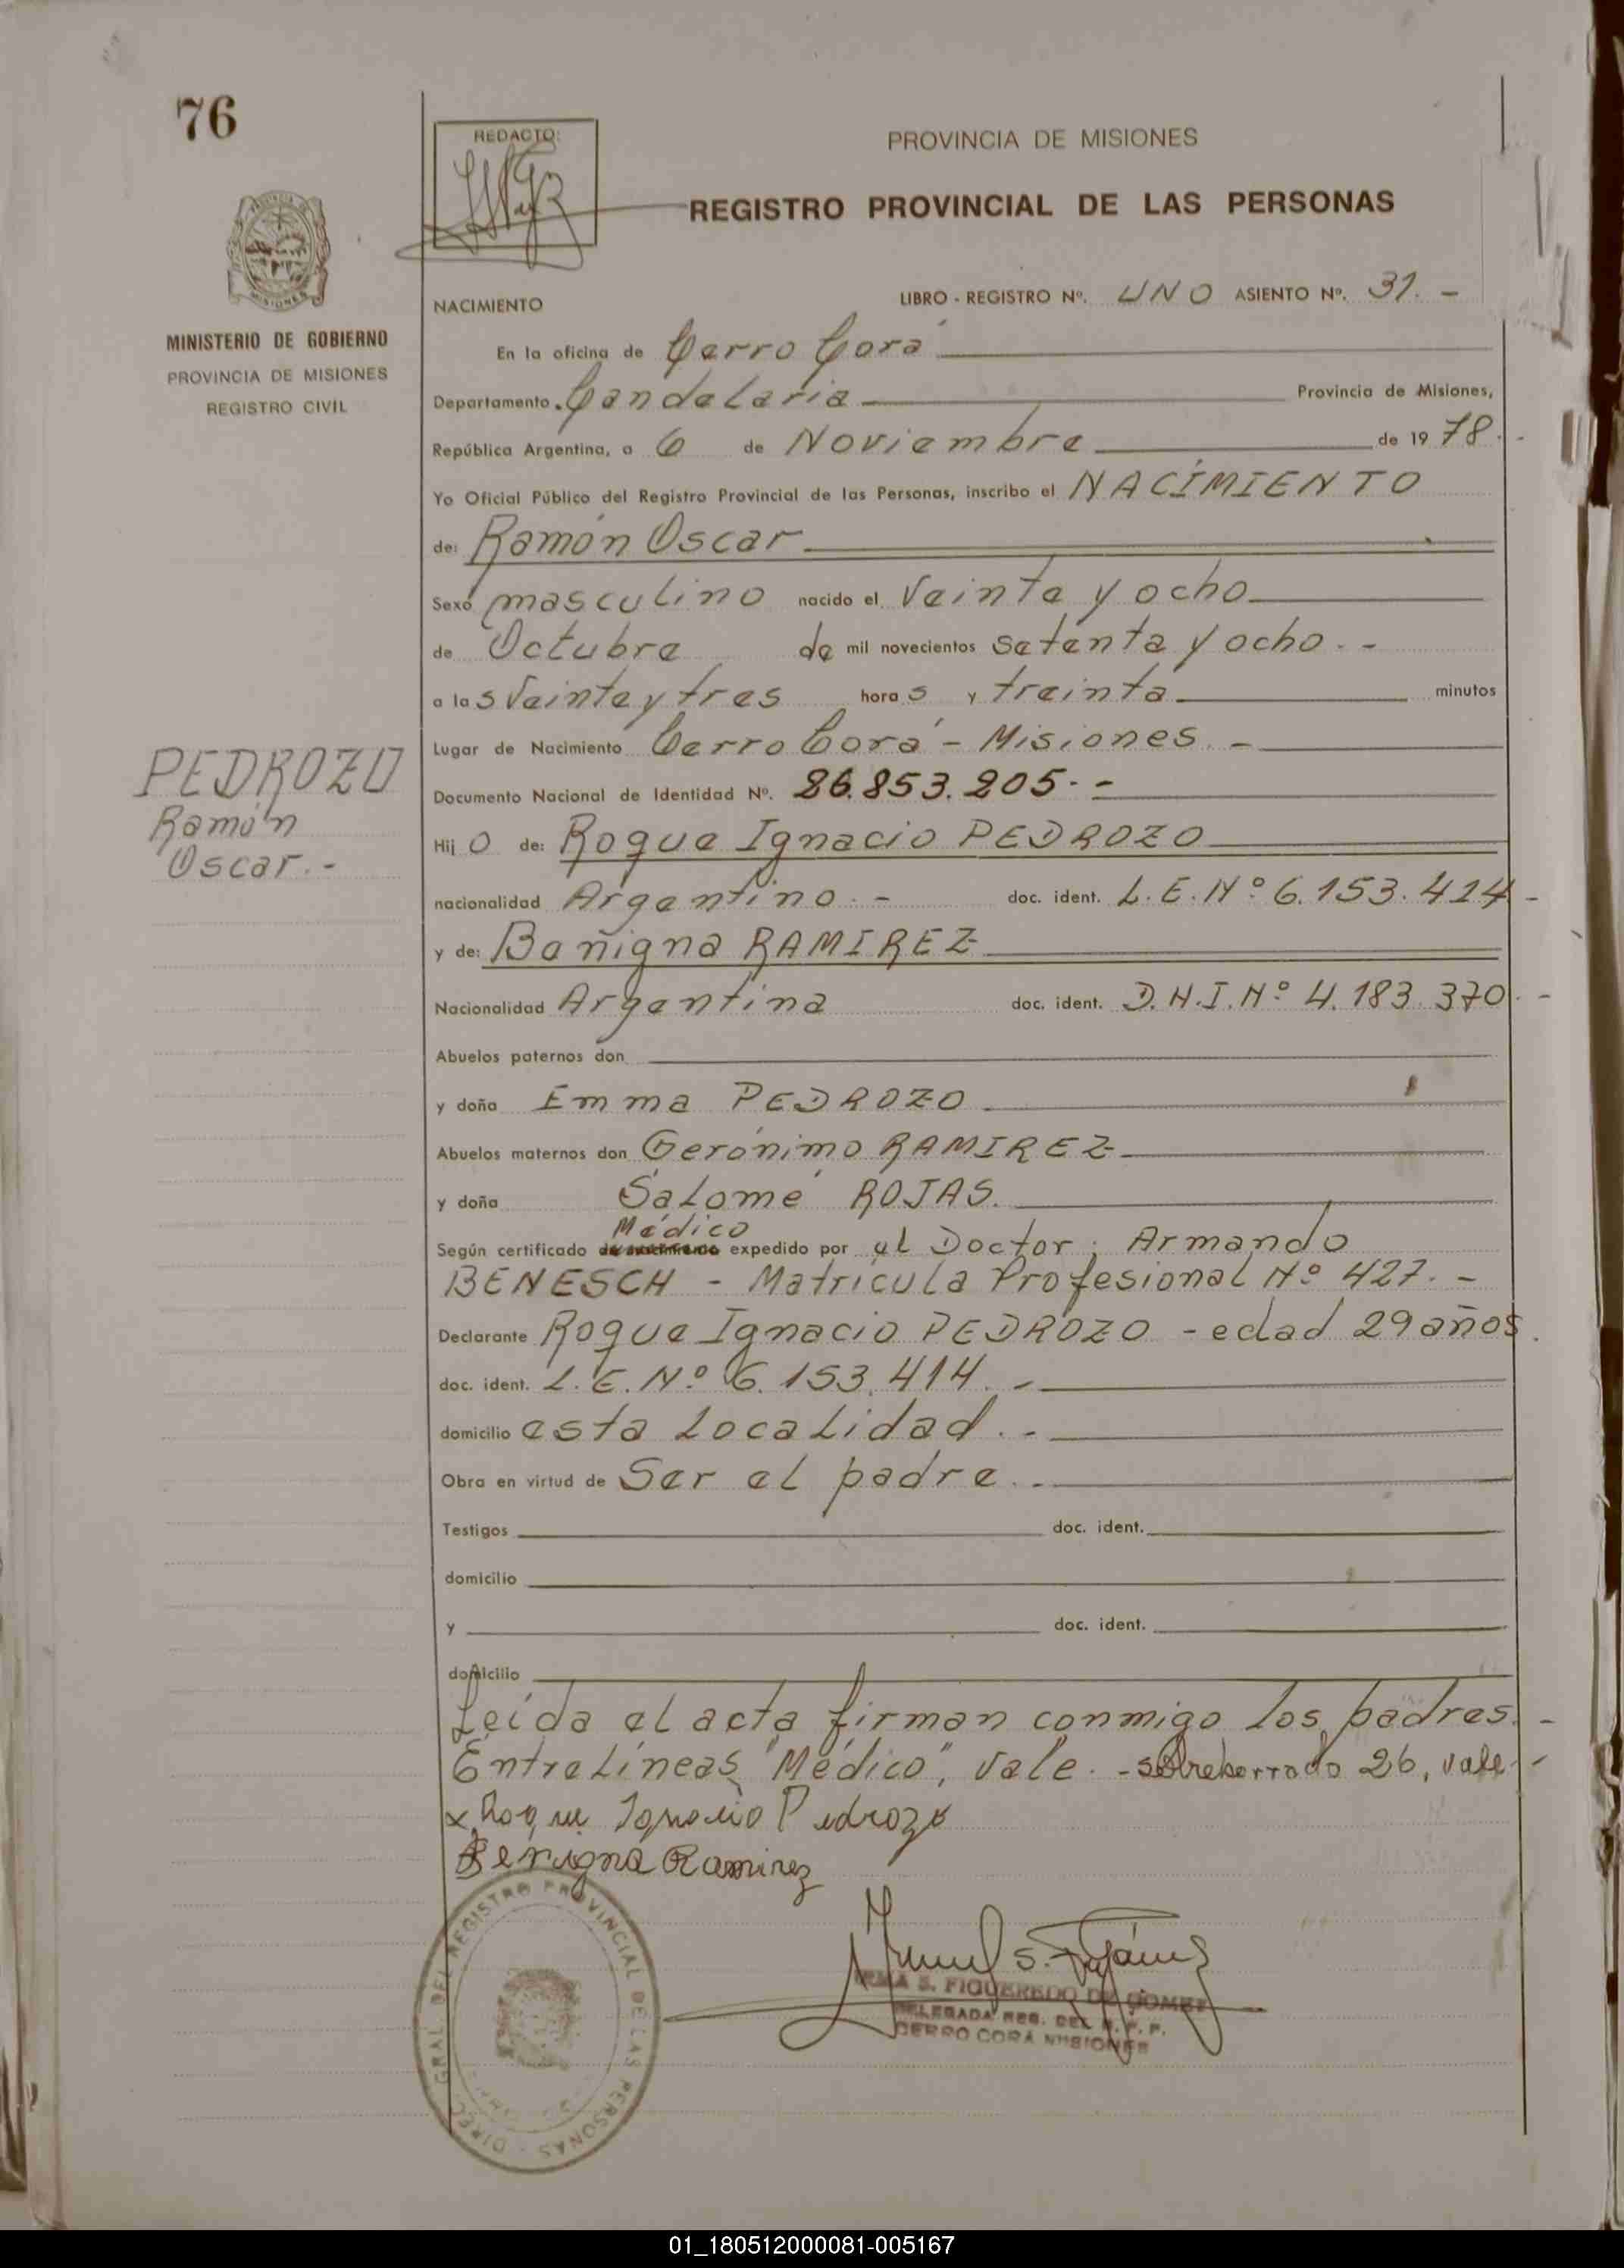 76
REDACTO:
PROVINCIA DE MISIONES
REGISTRO PROVINCIAL DE LAS PERSONAS
MISIONES
MINISTERIO DE GOBIERNO
PROVINCIA DE MISIONES
REGISTRO CIVIL
NACIMIENTO LIBRO - REGISTRO Nº. UNO ASIENTO Nº. 31. -
En la oficina de Cerro Corá
Departamento Candelaria Provincia de Misiones,
República Argentina, a 6 de Noviembre de 1978.-
Yo Oficial Público del Registro Provincial de las Personas, inscribo el NACIMIENTO
de: Ramón Oscar
Sexo masculino nacido el Veinte y ocho
de Octubre de mil novecientos setenta y ocho. -
a las Veinte y tres horas y treinta minutos
Lugar de Nacimiento Cerro Corá - Misiones. -
PEDROZO
Ramón
Oscar. -
Documento Nacional de Identidad Nº. 26.853.205. -
Hijo de: Roque Ignacio PEDROZO
nacionalidad Argentino. - doc. ident. L.E.Nº 6.153.414 -
y de: Beñigna RAMIREZ
Nacionalidad Argentina doc. ident. D.N.I.Nº 4.183.370. -
Abuelos paternos don
y doña Emma PEDROZO
Abuelos maternos don Gerónimo RAMIREZ
y doña Salomé ROJAS.
Médico
Según certificado de nacimiento expedido por el Doctor; Armando
BENESCH - Matrícula Profesional Nº 427. -
Declarante Roque Ignacio PEDROZO - edad 29 años.
doc. ident. L.E.Nº 6.153.414. -
domicilio esta localidad. -
Obra en virtud de Ser el padre. -
Testigos doc. ident.
domicilio
y doc. ident.
domicilio
Leída el acta firman conmigo los padres. -
Entrelíneas "Médico", vale. - sobreborrado 26, vale. -
x Roque Ignacio Pedrozo
Benigna Ramirez
DIREC. GRAL. DEL REGISTRO PROVINCIAL DE LAS PERSONAS
IRMA S. FIGUEREDO DE GOMEZ
DELEGADA REG. DEL R. P. P.
CERRO CORA MISIONES
01_180512000081-005167